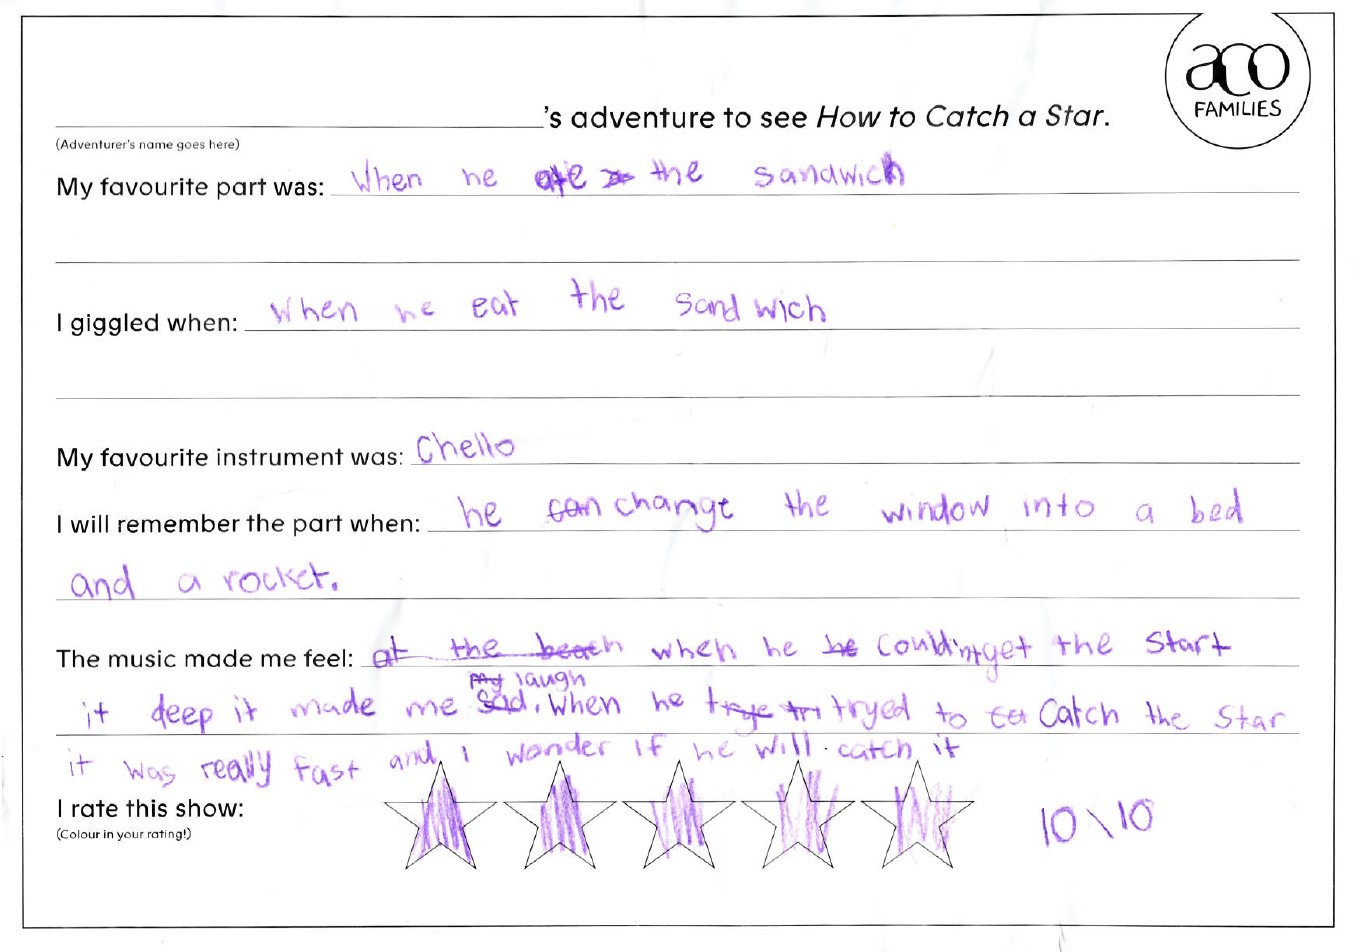 aco
FAMILIES
's adventure to see How to Catch a Star.
(Adventurer's name goes here)
My favourite part was: When he ate the sandwich
I giggled when: when he eat the sandwich
My favourite instrument was: Chello
I will remember the part when: he can change the window into a bed
and a rocket.
The music made me feel: at the beach when he he Couldintget the Start
my laugh
it deep it made me sad. when he trye tri tryed to cat Catch the Star
it was really fast and i wonder if he will catch it
I rate this show:
(Colour in your rating!)
10\10